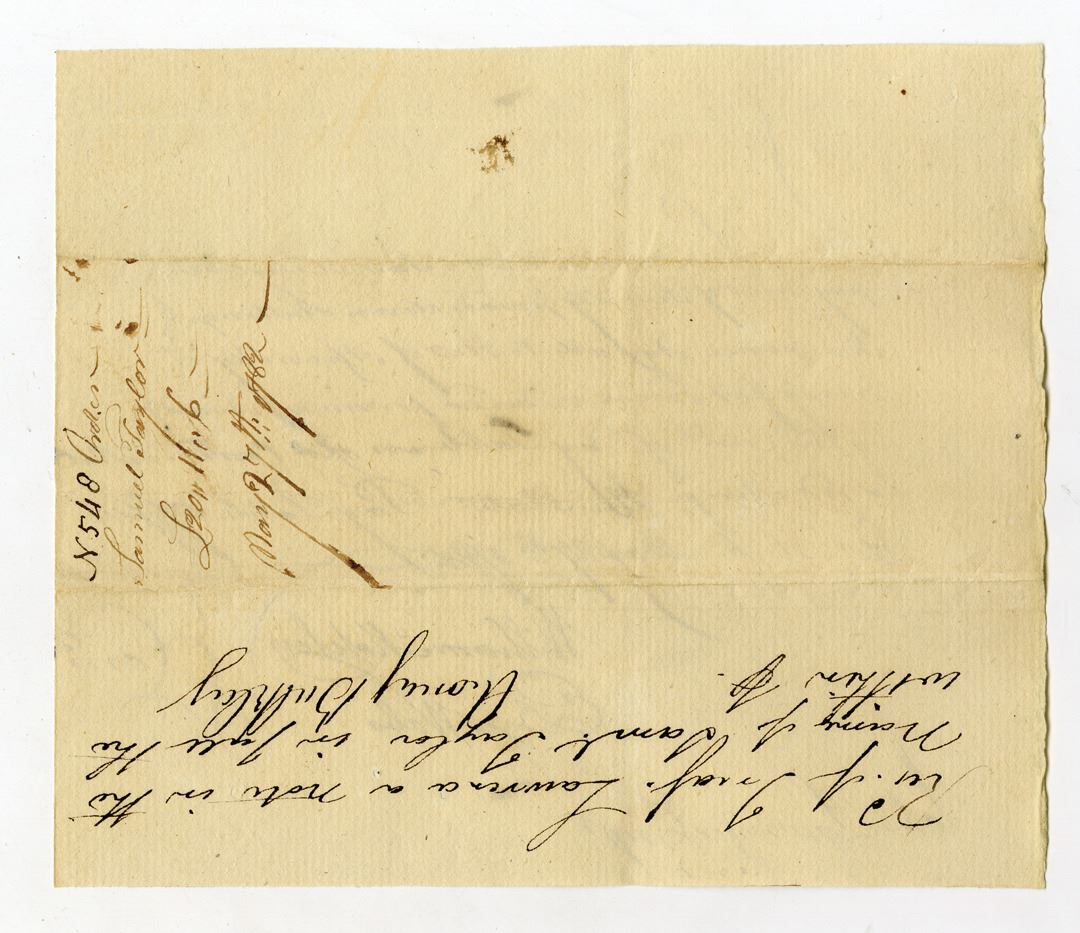 N 548 Order
Samuel Taylor
£20,,11,,6
Recd of Treasr Lawrence a note in the
Name of Saml. Taylor in full the
within
Bulkley